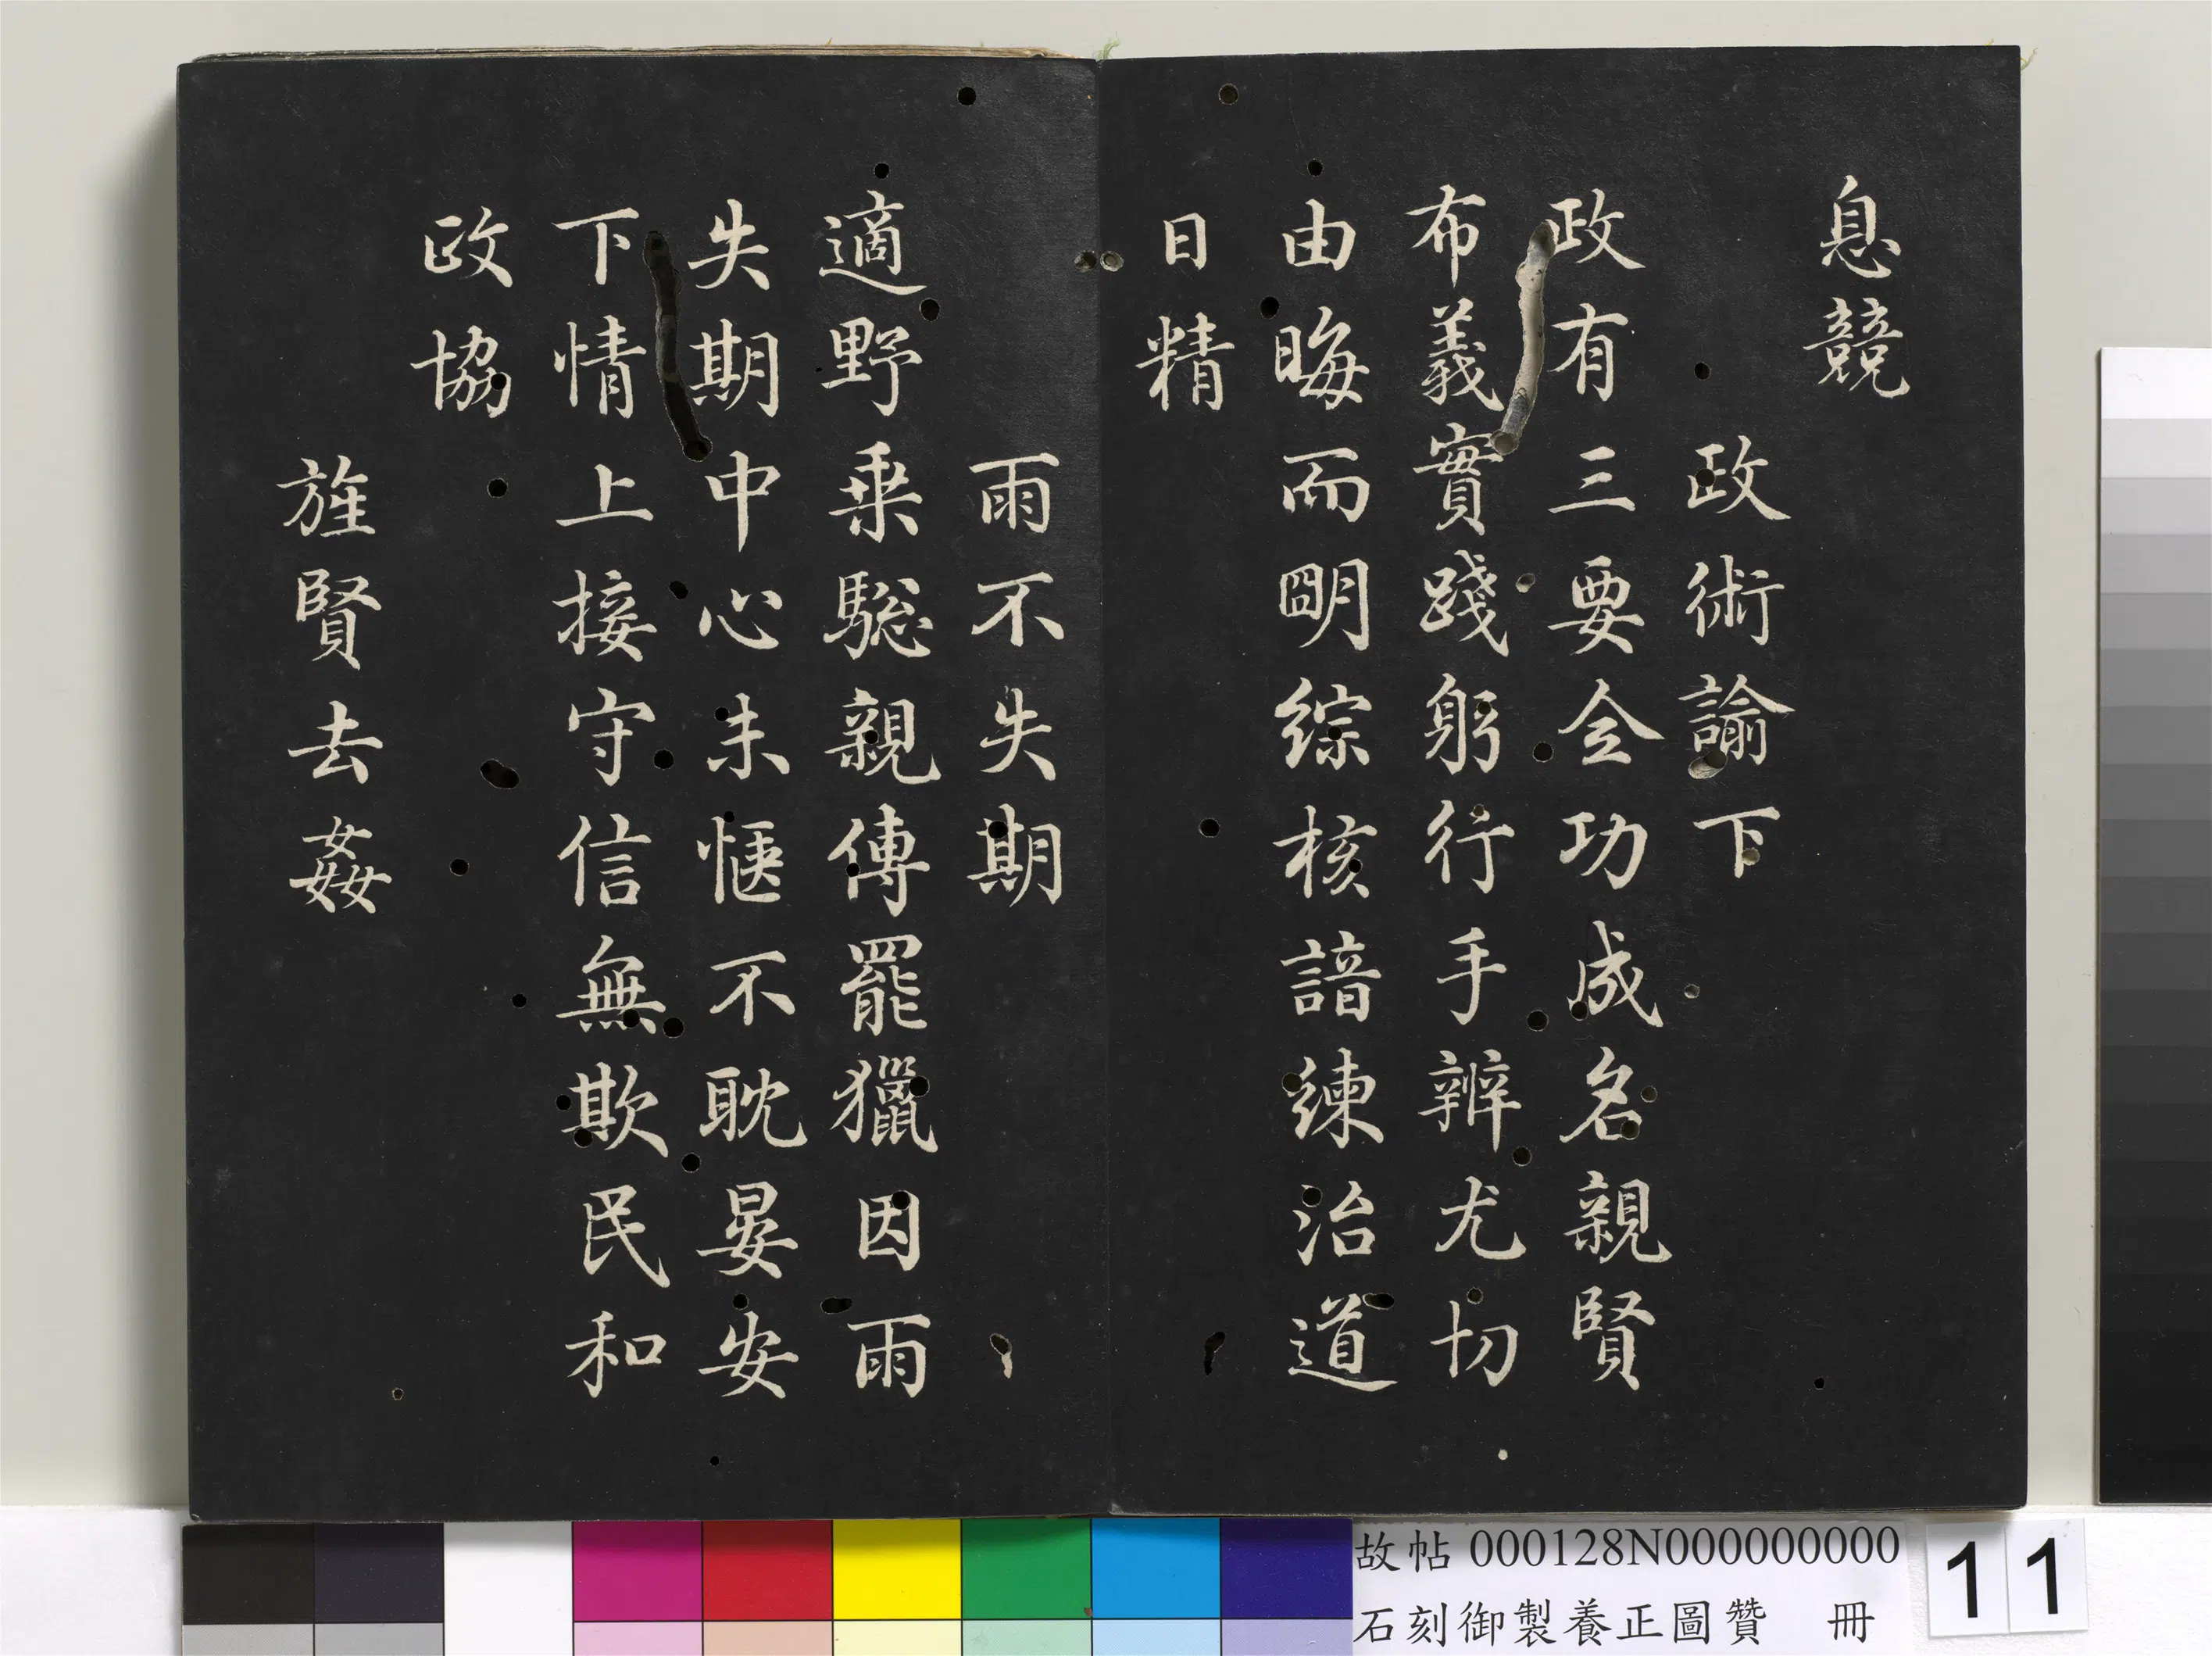 息競
政術諭下
政有三要令功成名親賢
布義實踐躬行手辨尤切
由晦而明綜核諳練治道
日精
雨不失期
適野乗騘親傳罷獵因雨
失期中心未愜不耽晏安
下情上接守信無欺民和
政協
旌賢去姦
故帖 000128N000000000
石刻御製養正圖贊 冊
11